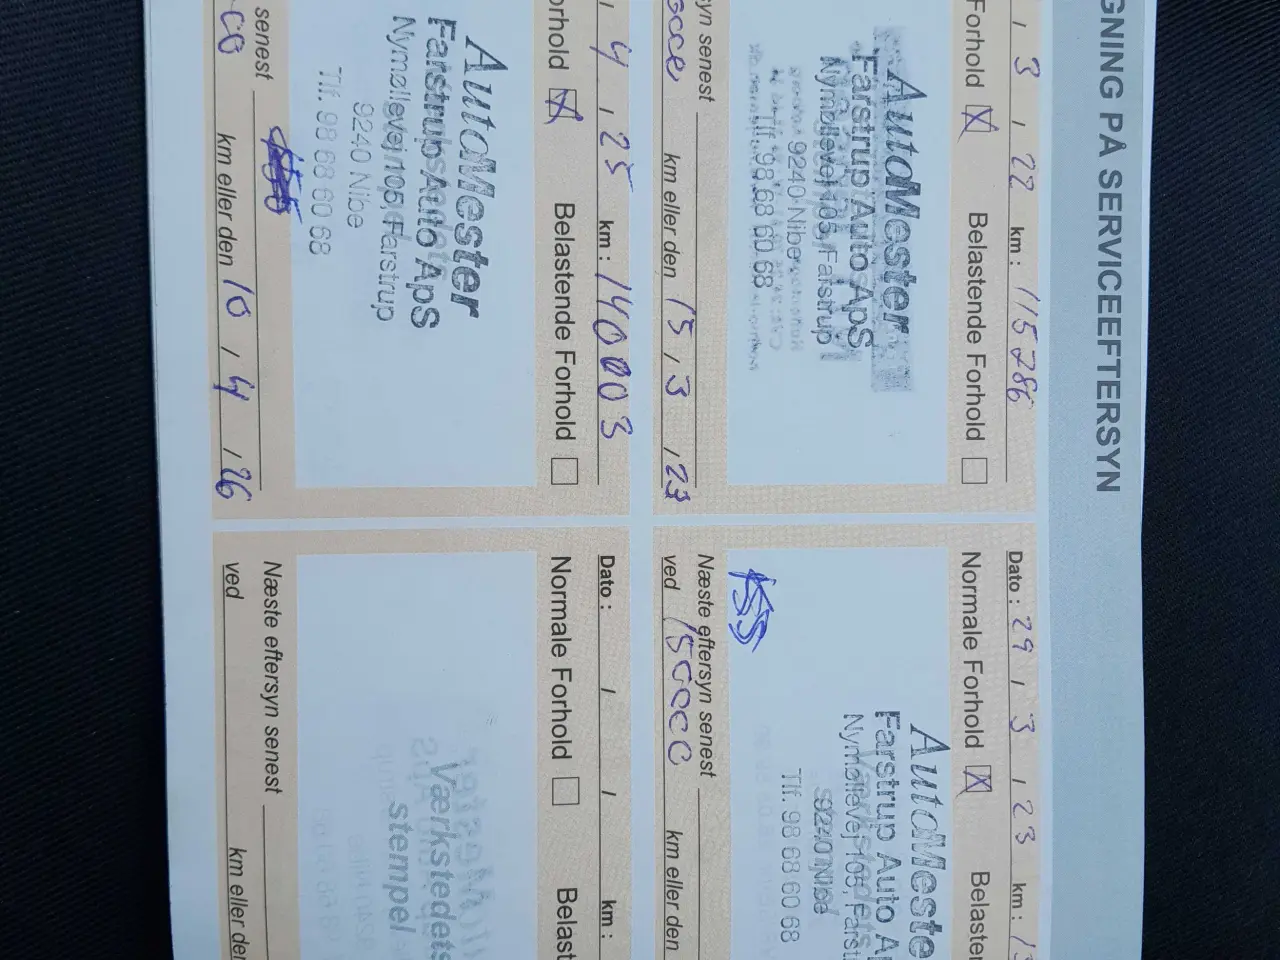 GNING PÅ SERVICEEFTERSYN
/ 3 / 22 km : 115286
Forhold ☒ Belastende Forhold ☐
AutoMester
Farstrup Auto ApS
Nymøllevej 105, Farstrup
9240 Nibe
Tlf. 98 68 60 68
yn senest
km eller den 15 / 3 / 23
Dato : 29 / 3 / 23 km : 13
Normale Forhold ☒ Belasten
AutoMeste
Farstrup Auto A
Nymøllevej 105, Farst
9240 Nibe
Tlf. 98 68 60 68
Næste eftersyn senest
ved 15000 km eller den
/ 4 / 25 km : 140003
orhold ☒ Belastende Forhold ☐
AutoMester
Farstrup Auto ApS
Nymøllevej 105, Farstrup
9240 Nibe
Tlf. 98 68 60 68
senest
km eller den 10 / 4 / 26
Dato : / / km :
Normale Forhold ☐ Belast
Værkstedets
stempel
Næste eftersyn senest
ved km eller den